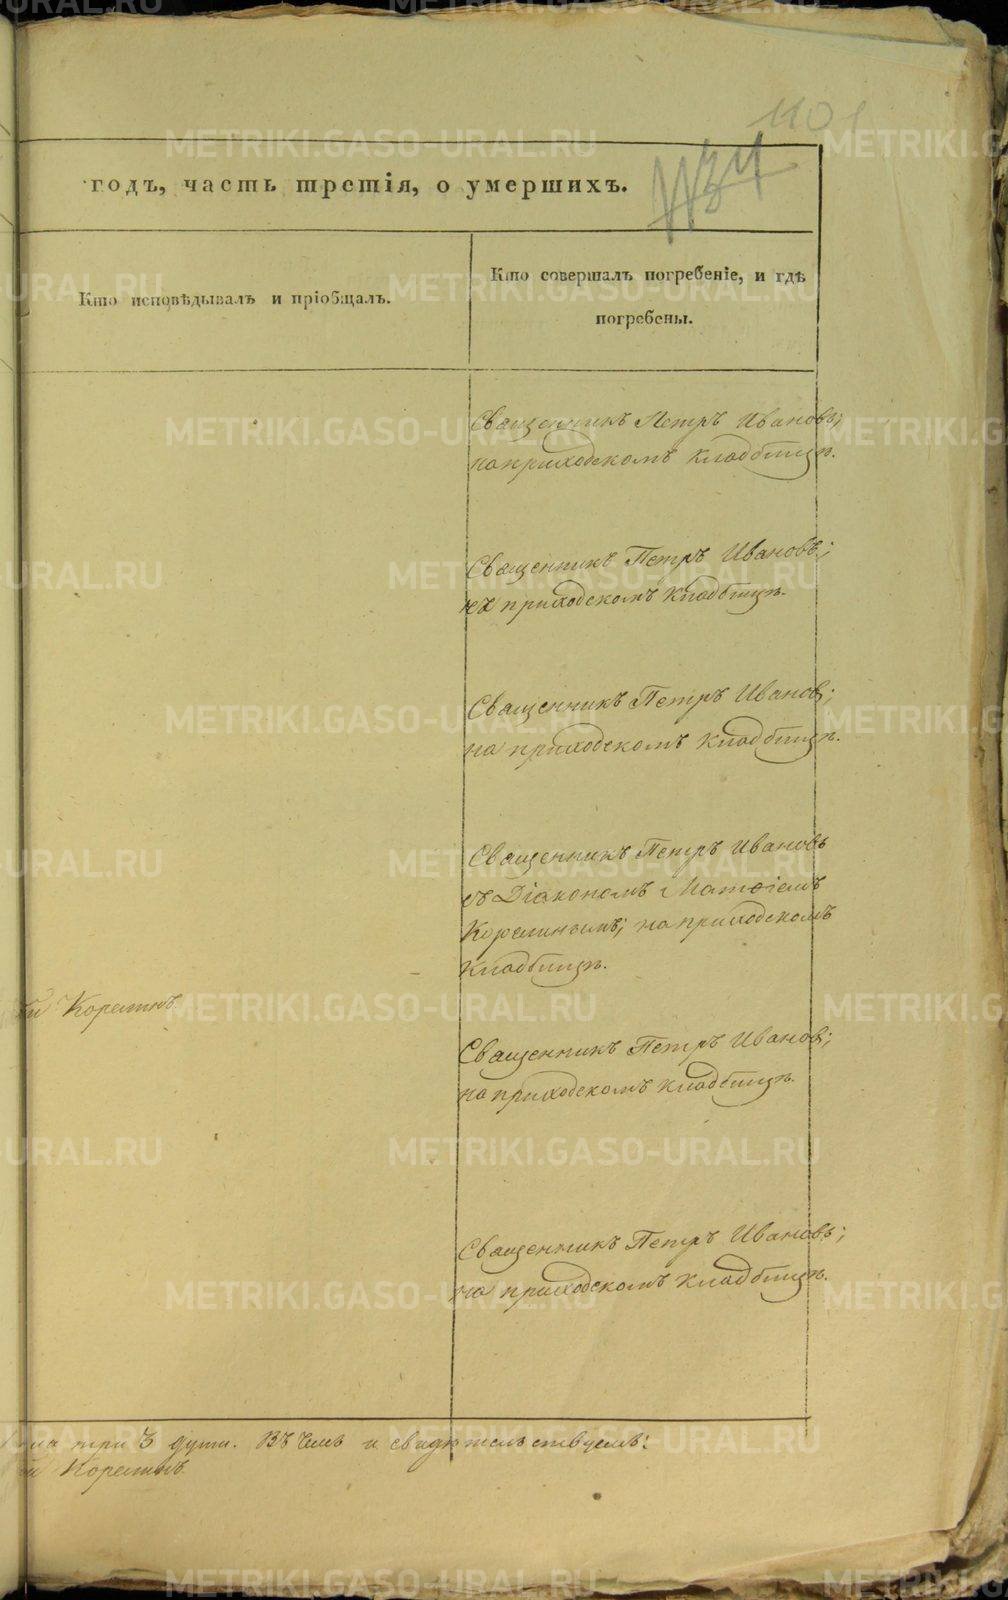 1101
годъ, часть третія, о умершихъ.
Кто исповѣдывалъ и пріобщалъ.
Кто совершалъ погребеніе, и гдѣ
погребены.
Священникъ Петръ Ивановъ;
на приходскомъ кладбищѣ.
Священникъ Петръ Ивановъ;
на приходскомъ кладбищѣ.
Священникъ Петръ Ивановъ;
на приходскомъ кладбищѣ.
Священникъ Петръ Ивановъ
съ Діакономъ Матѳіемъ
Корелинымъ; на приходскомъ
кладбищѣ.
Корелинъ.
Священникъ Петръ Ивановъ;
на приходскомъ кладбищѣ.
Священникъ Петръ Ивановъ;
на приходскомъ кладбищѣ.
три 3 души. Въ чемъ и свидѣтельствуемъ:
Корелинъ.
METRIKI.GASO-URAL.RU